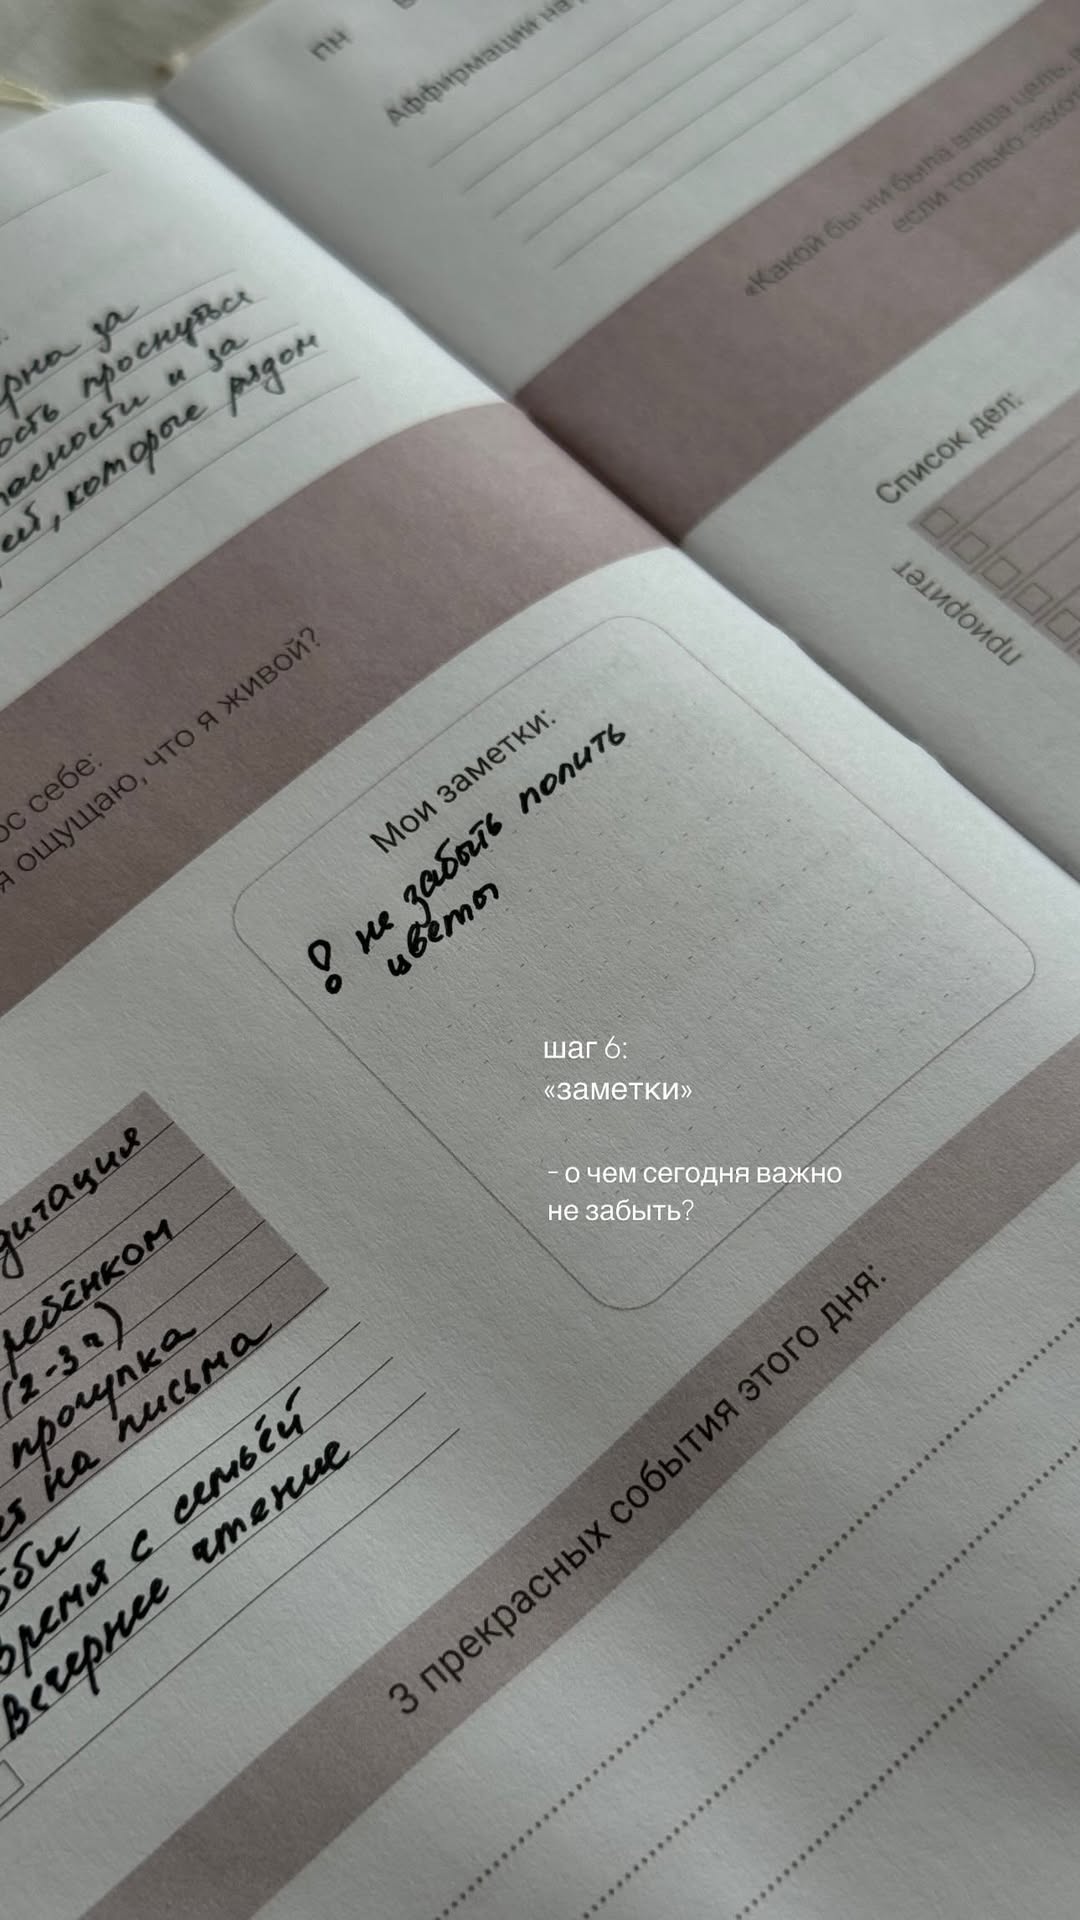 пн
Аффирмации на
«Какой бы ни была ваша цель,
если только захот
Список дел:
приоритет
за
ость проснуться
и за
ей, которые рядом
ос себе:
я ощущаю, что я живой?
Мои заметки:
! не забыть полить
цветы
шаг 6:
«заметки»
- о чем сегодня важно
не забыть?
дитация
ребёнком
(2-3ч)
прогулка
на письма
бби
время с семьёй
Вечернее чтение
3 прекрасных события этого дня: